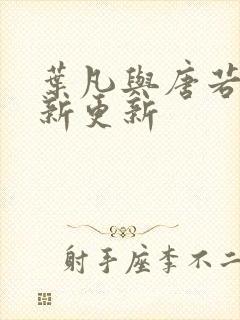 葉凡與唐若
新更新
射手座李不二